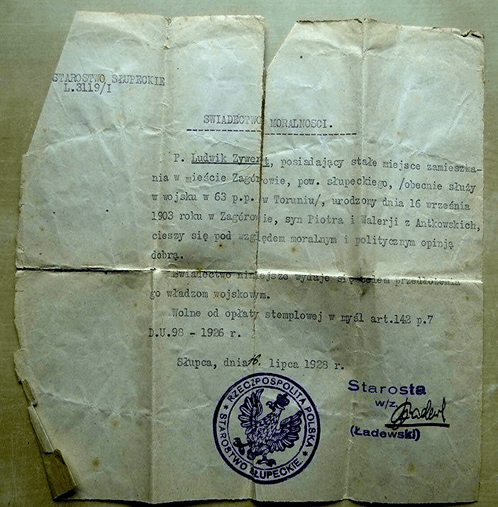 STAROSTWO SŁUPECKIE
L.3119/I
SWIADECTWO MORALNOSCI.
P. Ludwik Zywert, posiadający stałe miejsce zamieszka-
nia w mieście Zagórowie, pow. słupeckiego, /obecnie służy
w wojsku w 63 p.p. w Toruniu/, urodzony dnia 16 września
1903 roku w Zagórowie, syn Piotra i Walerji z Antkowskich,
cieszy się pod względem moralnym i politycznym opinją
dobrą.
Swiadectwo niniejsze wydaje się celem przedłożenia
go władzom wojskowym.
Wolne od opłaty stemplowej w myśl art.142 p.7
D.U.98 - 1926 r.
Słupca, dnia 16. lipca 1928 r.
RZECZPOSPOLITA POLSKA
STAROSTWO SŁUPECKIE
Starosta
w/z
(Ładewski)